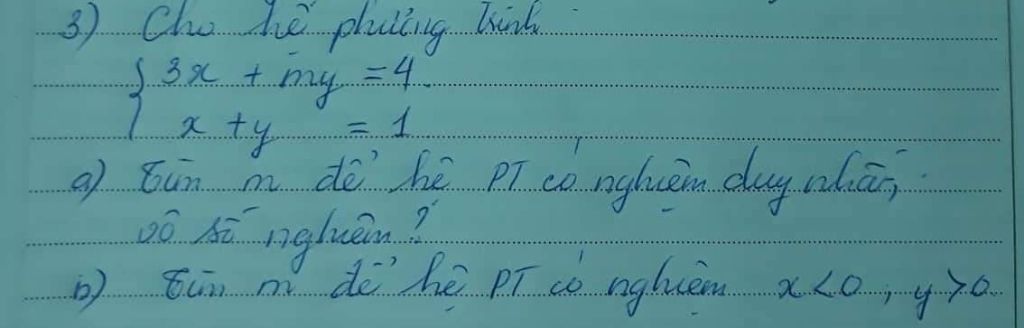 3) Cho hệ phương trình
{ 3x + my = 4
x + y = 1
a) Tìm m để hệ PT có nghiệm duy nhất,
vô số nghiệm?
b) Tìm m để hệ PT có nghiệm x < 0, y > 0